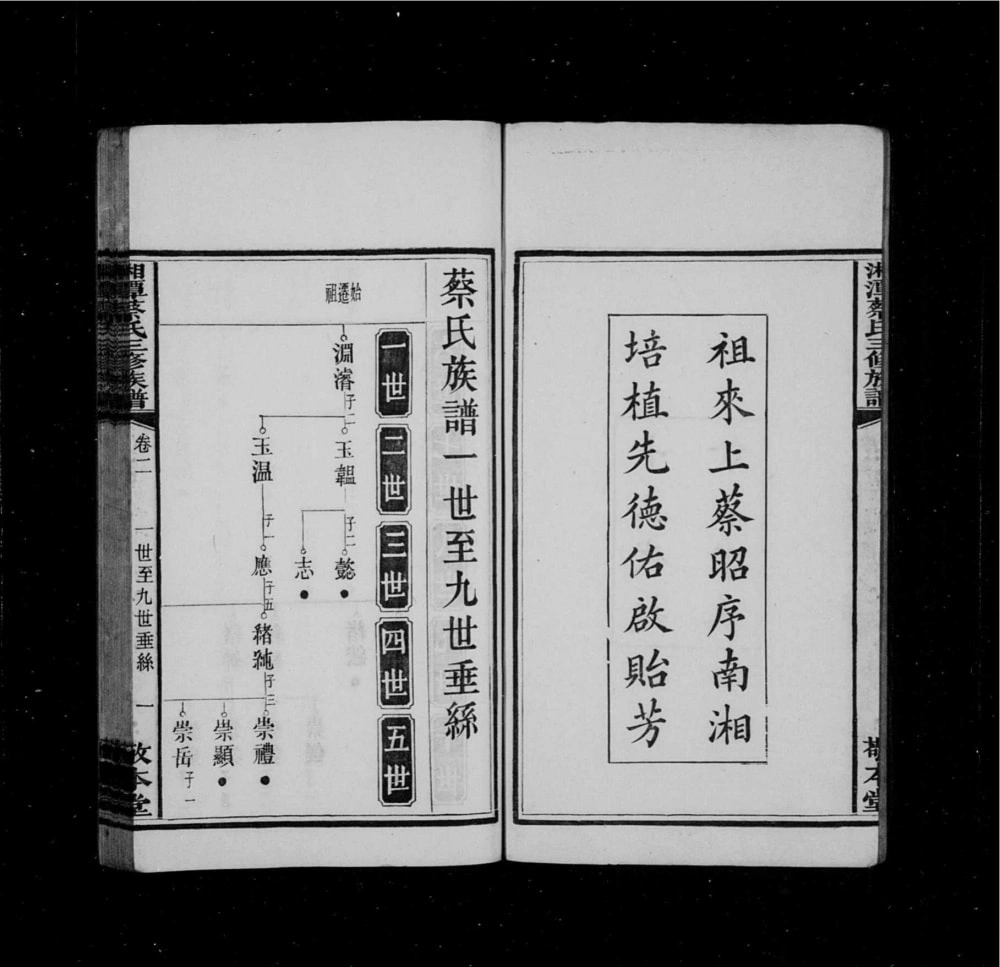 湘潭蔡氏三修族譜
敬本堂
祖來上蔡昭序南湘
培植先德佑啟貽芳
蔡氏族譜一世至九世垂絲
一世
二世
三世
四世
五世
始遷祖
淵濬
子二
玉韞
子二
懿
志
玉温
子一
應
子五
緒
子三
崇禮
崇顯
崇岳
子一
湘潭蔡氏三修族譜
卷二
一世至九世垂絲
一
敬本堂